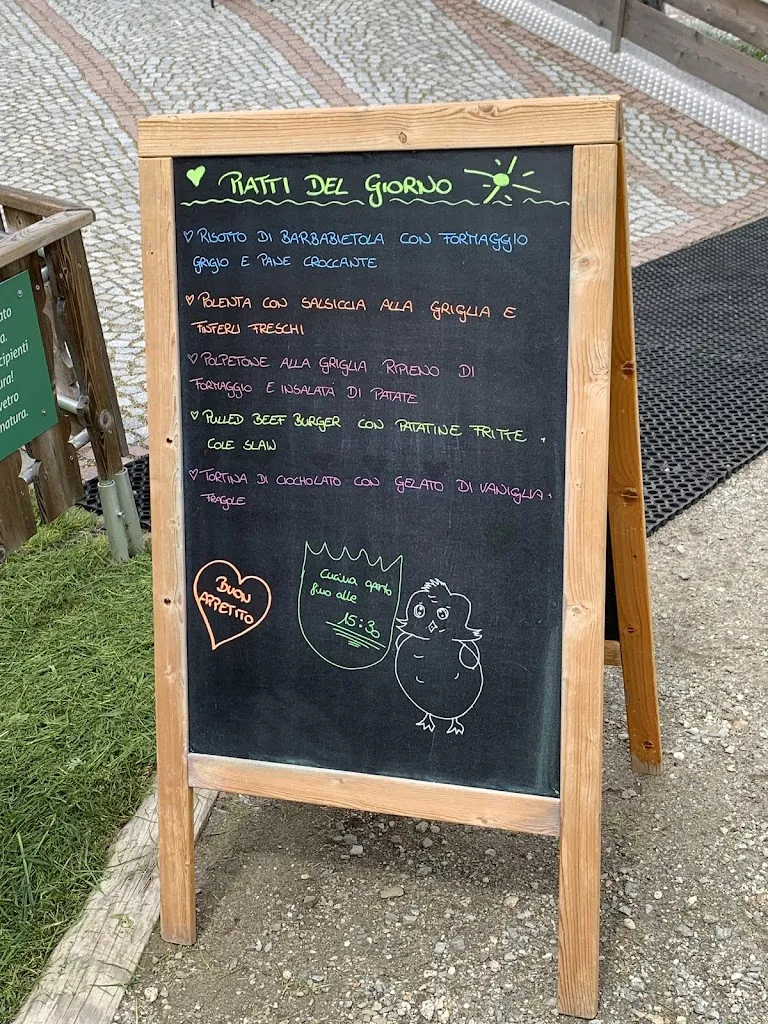 PIATTI DEL GIORNO
RISOTTO DI BARBABIETOLA CON FORMAGGIO
GRIGIO E PANE CROCCANTE
POLENTA CON SALSICCIA ALLA GRIGLIA E
FINFERLI FRESCHI
POLPETONE ALLA GRIGLIA RIPIENO DI
FORMAGGIO E INSALATA DI PATATE
PULLED BEEF BURGER CON PATATINE FRITTE +
COLE SLAW
TORTINA DI CIOCHOLATO CON GELATO DI VANIGLIA +
FRAGOLE
BUON
APPETITO
Cucina aperto
fino alle
15:30
ato
a.
cipienti
tural
vetro
natura.